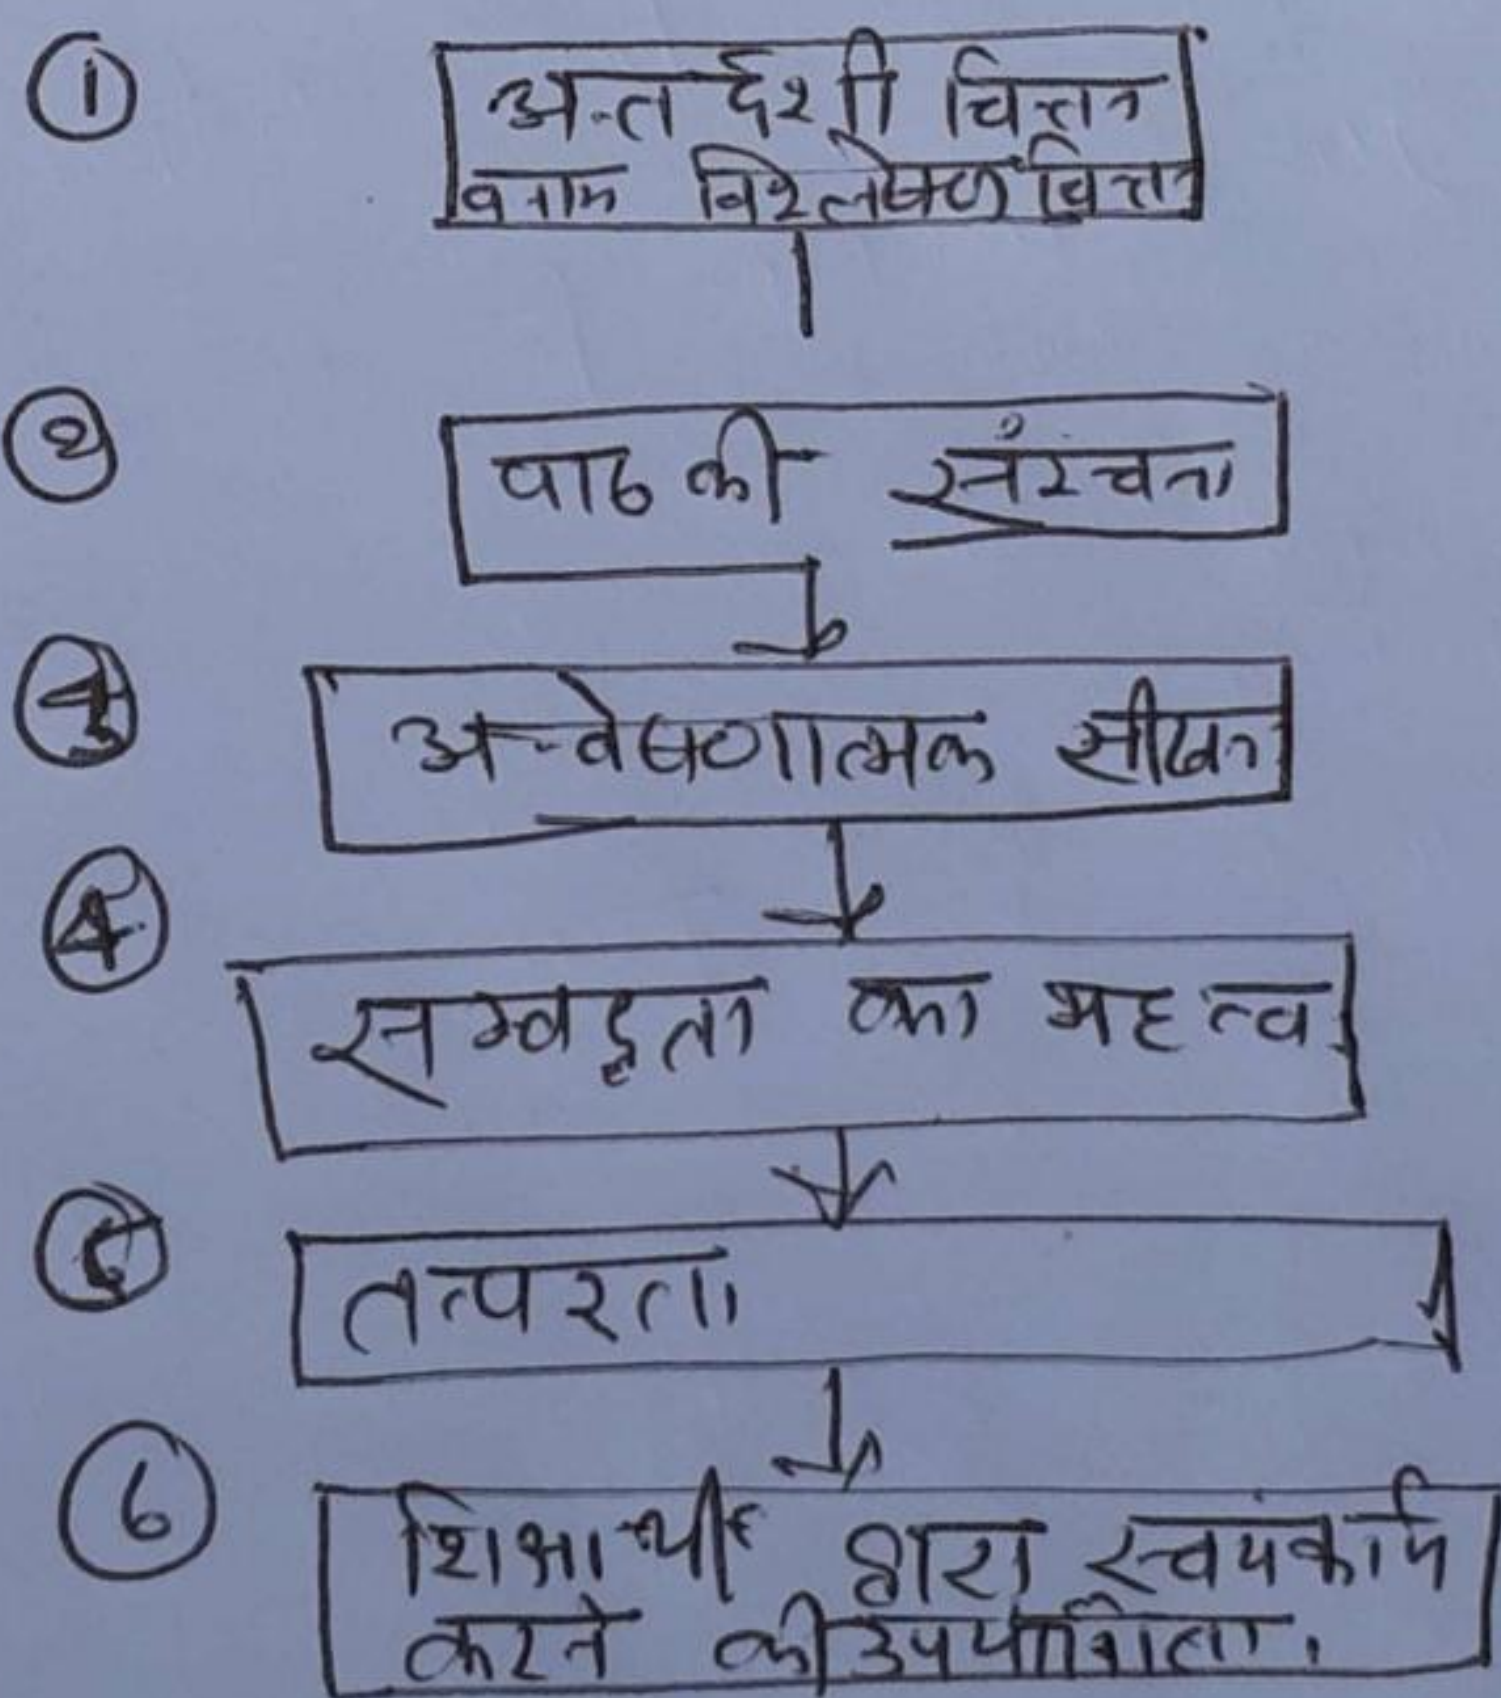 ①
अन्तर्दशी चिन्तन
बनाम विश्लेषण चिन्तन
②
पाठ की संरचना
③
अन्वेषणात्मक सीखना
④
सम्बद्धता का महत्व
⑤
तत्परता
⑥
शिक्षार्थी द्वारा स्वयं कार्य
करने की उपयोगिता।